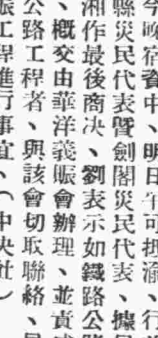 今晚宿資中、明日午可抵渝、行
縣災民代表暨劍閣災民代表、據
湘作最後商决、劉表示如鐵路公
、概交由華洋義賑會辦理、並責
公路工程者、與該會切取聯絡、
賑工程進行事宜、（中央社）